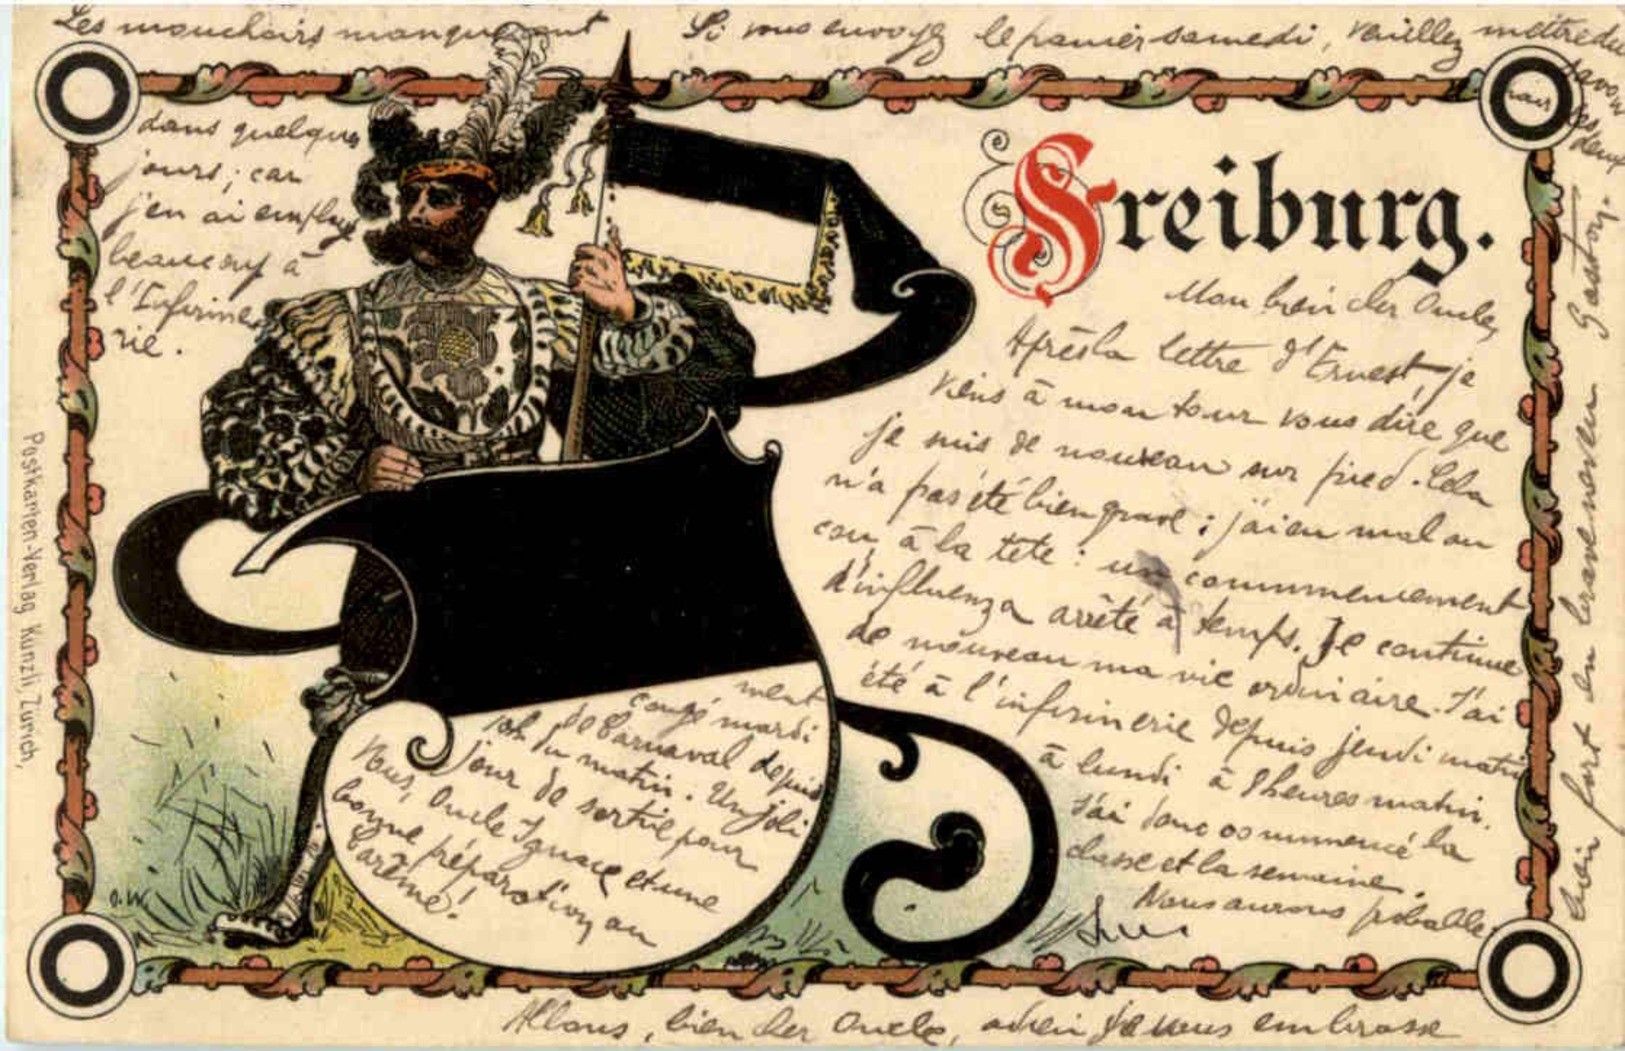 Freiburg.
Mon bien cher Oncle,
Après la lettre d'Ernest, je
viens à mon tour vous dire que
je suis de nouveau sur pied. Cela
n'a pas été bien grave ; j'ai eu mal au
cou, à la tête : un commencement
d'influenza arrêté à temps. Je continue
de nouveau ma vie ordinaire. J'ai
été à l'infirmerie depuis jeudi matin
à lundi à 8 heures matin.
J'ai donc commencé la
classe et la semaine.
Nous aurons probable-
ment
congé mardi
de Carnaval depuis
10h du matin. Un joli
jour de sortie pour
Nous, Oncle Ignace et une
bonne préparation au
Carême!
Allons, bien cher Oncle, adieu je vous embrasse
bien fort en brave neveu Gaston.
Si vous envoyez le panier samedi, veuillez mettre du
savon
les deux
Les mouchoirs manqueront
dans quelques
jours ; car
j'en ai employé
beaucoup à
l'Infirme-
rie.
O.W.
Postkarten-Verlag Künzli, Zürich,